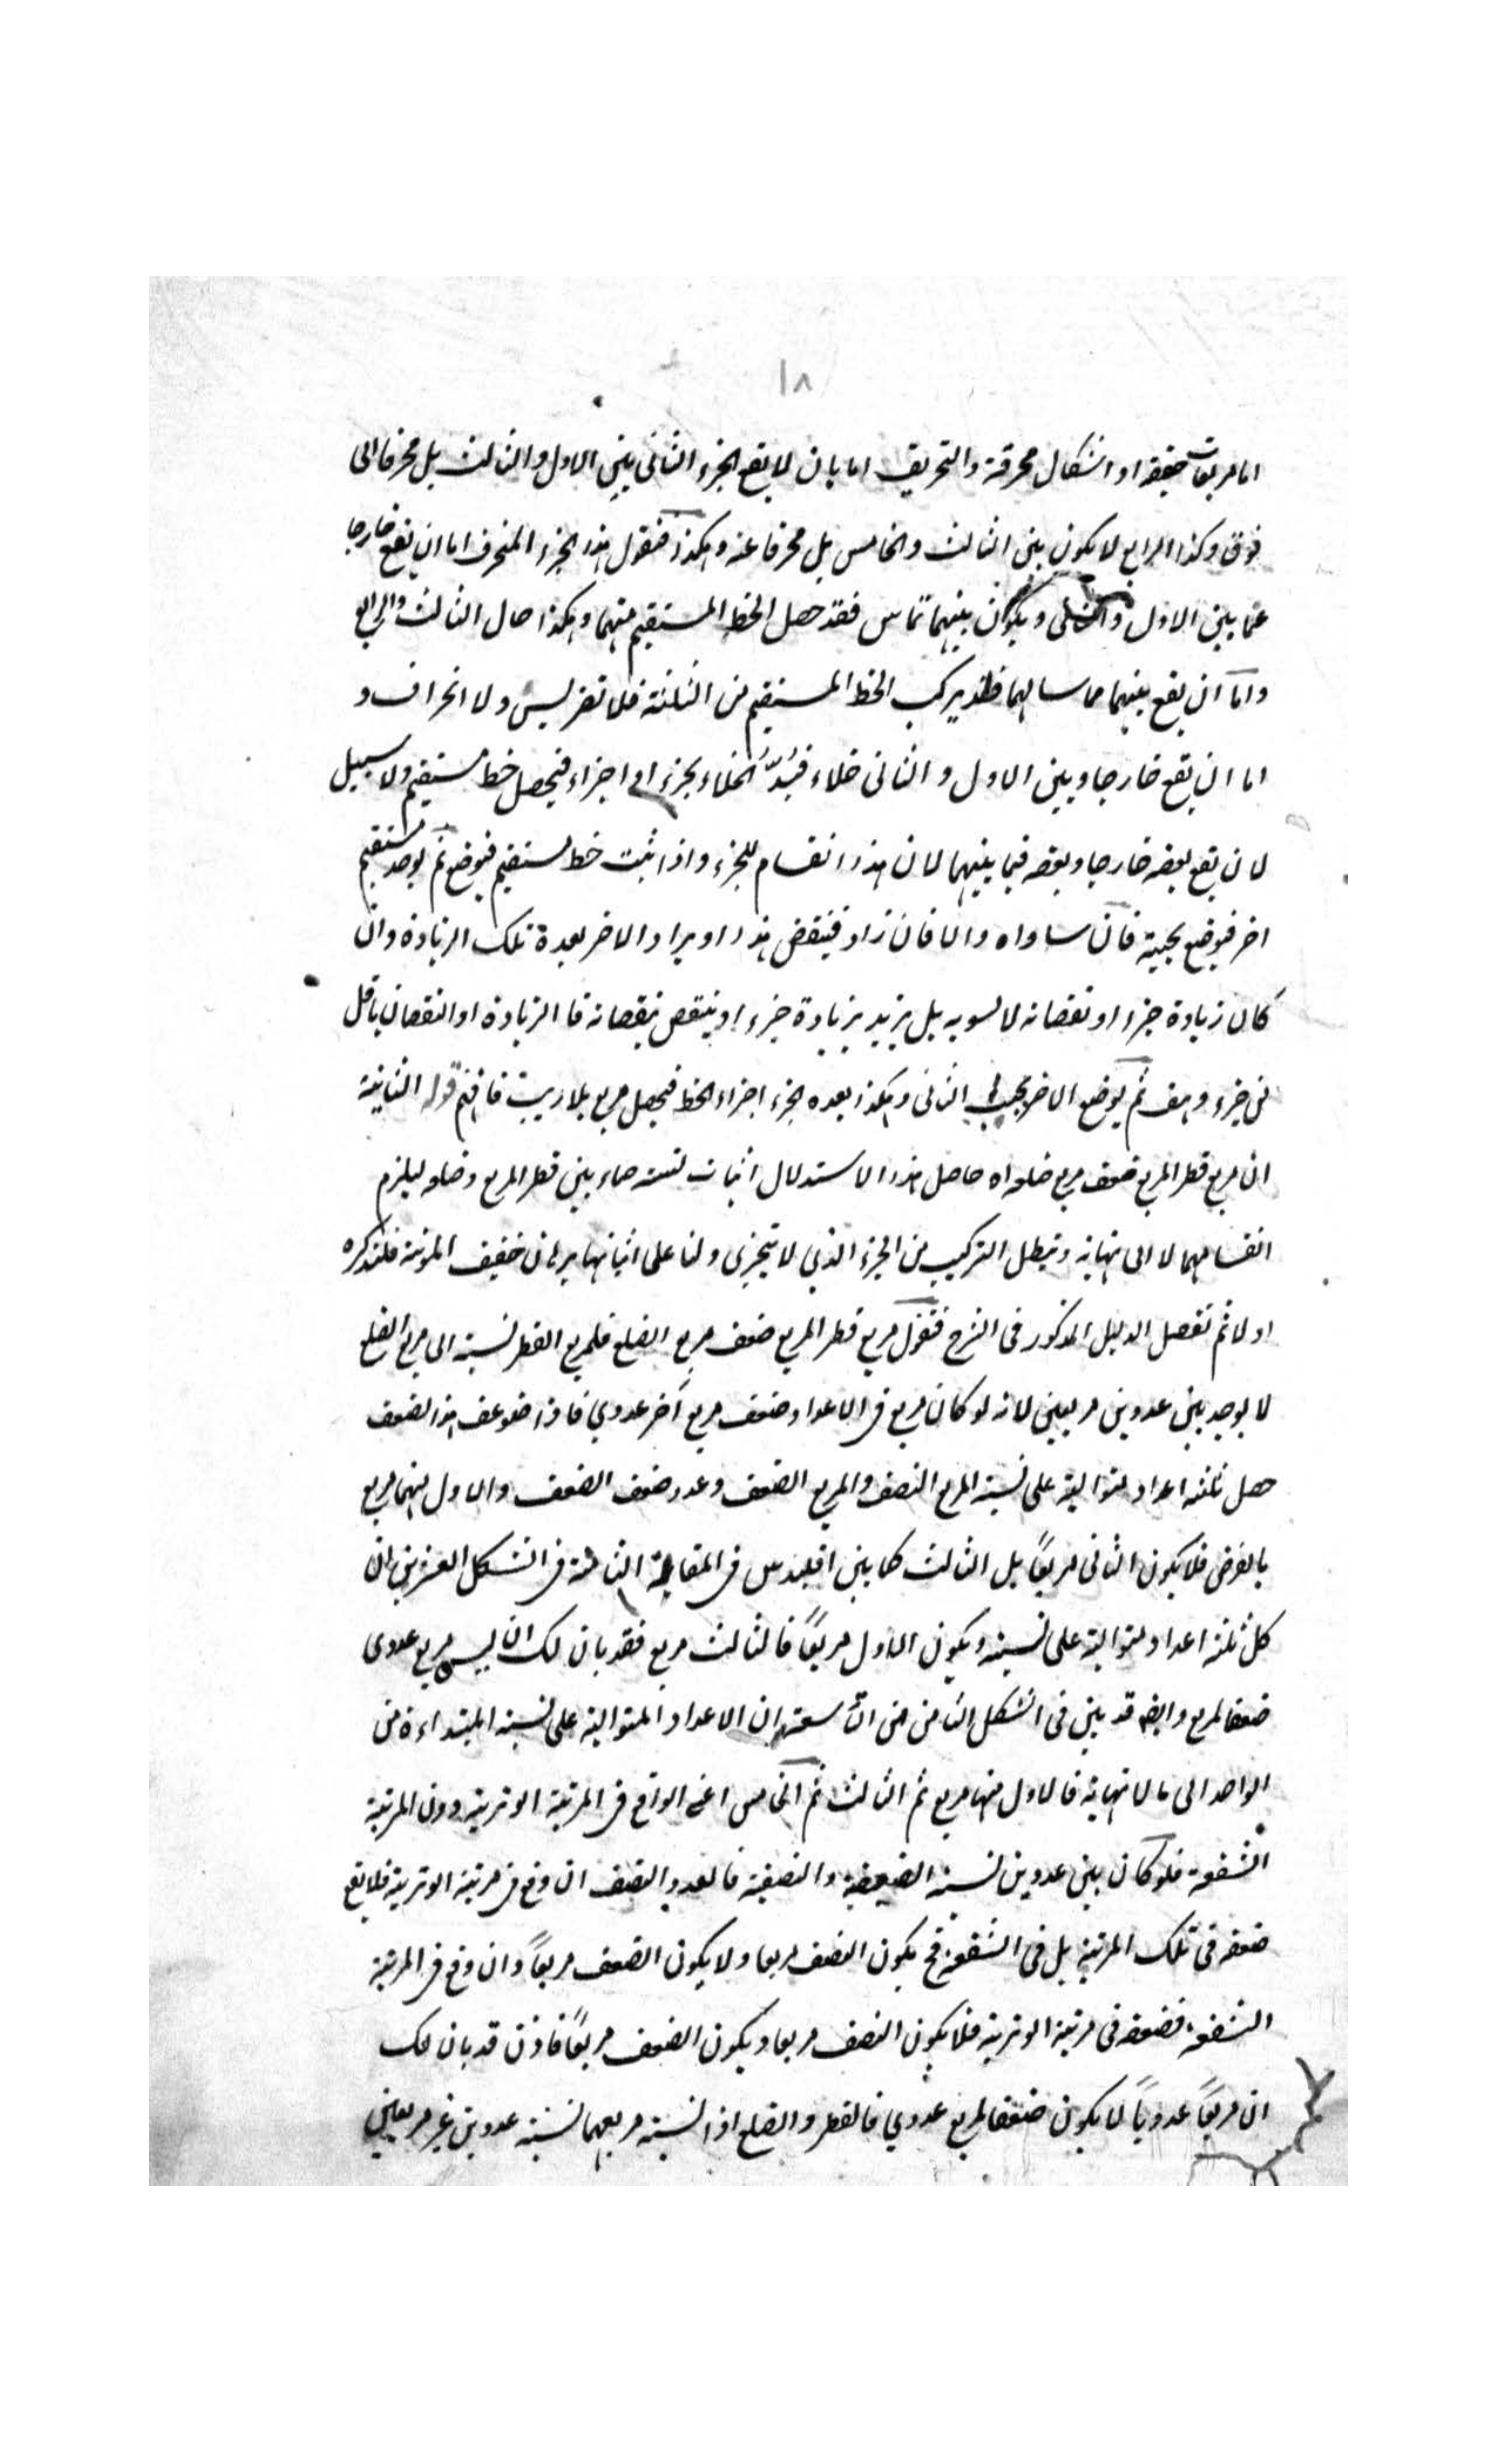 ١٨
اما مربعات حقيقة او اشكال محرفة والتحريف اما بان لا يقع الجزء الثانى بين الاول والثالث بل محرفا الى
فوق وكذا الرابع لا يكون بين الثالث والخامس بل محرفا عنه وهكذا فنقول هذا الجزء المنحرف اما ان يقع خارجا
عما بين الاول والثانى ويكون بينهما تماس فقد حصل الخط المستقيم منهما وهكذا حال الثالث والرابع
واما ان يقع بينهما مماسا لهما يركب الخط المستقيم من الثلثة فلا تضريس ولا انحراف و
اما ان يقع خارجا وبين الاول والثانى خلاء فيسدّ الخلاء بجزء او اجزاء فيحصل خط مستقيم ولا سبيل
لان يقع بعضه خارجا وبعضه فيما بينهما لان هذا انقسام للجزء واذا ثبت خط مستقيم فيوضع ثم يوجد مستقيم
اخر فيوضع بجنبه فان ساواه والا فان زاد فينقص هذا او يزاد الاخر بعدة تلك الزيادة وان
كان زيادة جزء او نقصانه لا يسويه بل يزيد بزيادة جزء او ينتقص بنقصانه فا الزيادة او النقصان باقل
من جزء وهف ثم يوضع الاخر بجنب الثانى وهكذا بعده اجزاء الخط فيحصل مربع بلا ريب فافهم قوله الثانية
ان مربع قطر المربع ضعف مربع ضلعه اه حاصل هذا الاستدلال اثبات نسبة صماء بين قطر المربع وضلعه ليلزم
انقسامهما لا الى نهاية ويبطل التركيب من الجزء الذي لا يتجزى ولنا على اثباتها برهان خفيف المؤنة فلنذكره
اولا ثم نفصل الدليل المذكور فى الشرح فنقول مربع قطر المربع ضعف مربع الضلع فلمربع القطر نسبة الى مربع الضلع
لا يوجد بين عددين مربعين لانه لو كان مربع فى الاعداد ضعف مربع آخر عددي فاذا ضوعف هذا الضعف
حصل ثلثة اعداد متوالية على نسبة المربع النصف والمربع الضعف وعدد ضعف الضعف والاول منهما مربع
بالفرض فلا يكون الثانى مربعاً بل الثالث كما بين اقليدس فى المقالة الثامنة فى الشكل العشرين ان
كل ثلثة اعداد متوالية على نسبة ويكون الاول مربعاً فالثالث مربع فقد بان لك ان ليس مربع عددى
ضعفا لمربع وايضه قد بين فى الشكل الثامن من التاسعة ان الاعداد المتوالية على نسبة المبتداءة من
الواحد الى ما لا نهاية فالاول منها مربع ثم الثالث ثم الخامس اعنى الواقع فى المرتبة الوترية دون المرتبة
الشفعية فلو كان بين عددين نسبة الضعفية والنصفية فالعدد النصف ان وقع فى مرتبة الوترية فلا يقع
ضعفه فى تلك المرتبة بل فى الشفعية فح يكون النصف مربعا ولا يكون الضعف مربعاً وان وقع فى المرتبة
الشفعية فضعفه فى مرتبة الوترية فلا يكون النصف مربعا ويكون الضعف مربعاً فاذن قد بان لك
ان مربعاً عددياً لا يكون ضعفا لمربع عددي فالقطر والضلع اذا نسبة مربعهما نسبة عددين غير مربعين